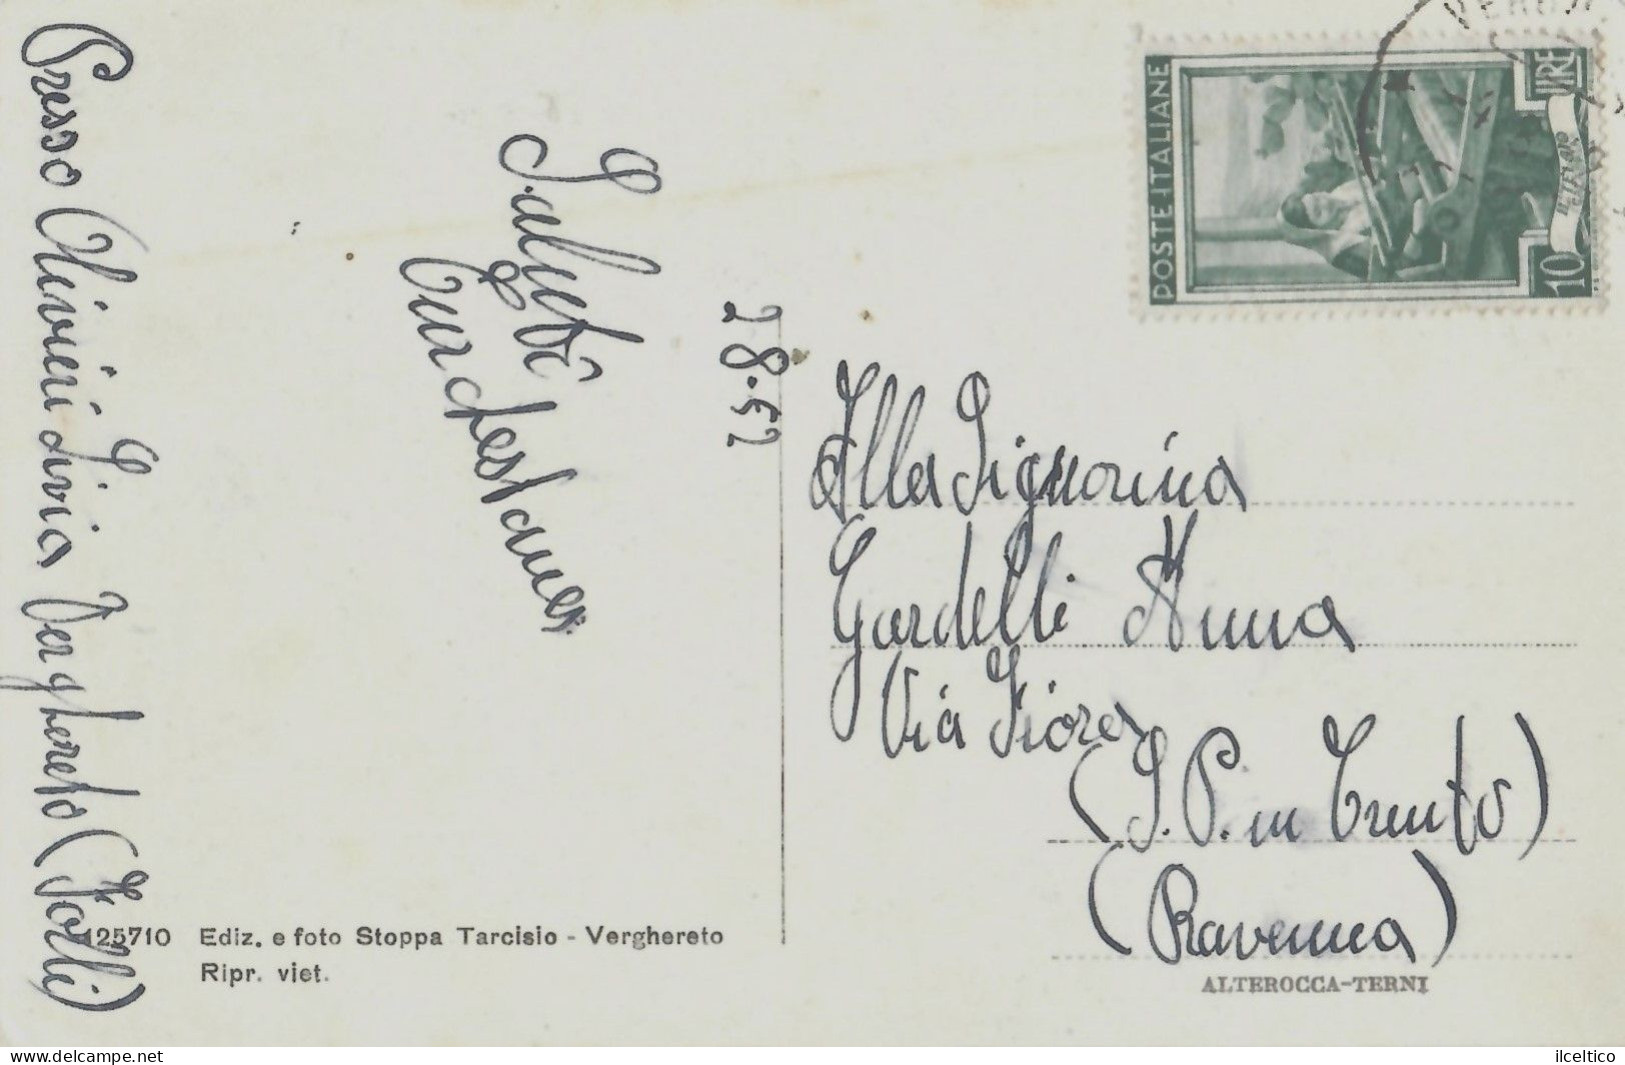 Presso Olivieri Livia Verghereto (Forlì)
Saluti
2 8.52
Alla Signorina
Gardelli Anna
Via Fiora
(S. P. in Trento)
(Ravenna)
POSTE ITALIANE
10 LIRE
125710 Ediz. e foto Stoppa Tarcisio - Verghereto
Ripr. viet.
ALTEROCCA-TERNI
www.delcampe.net
ilceltico